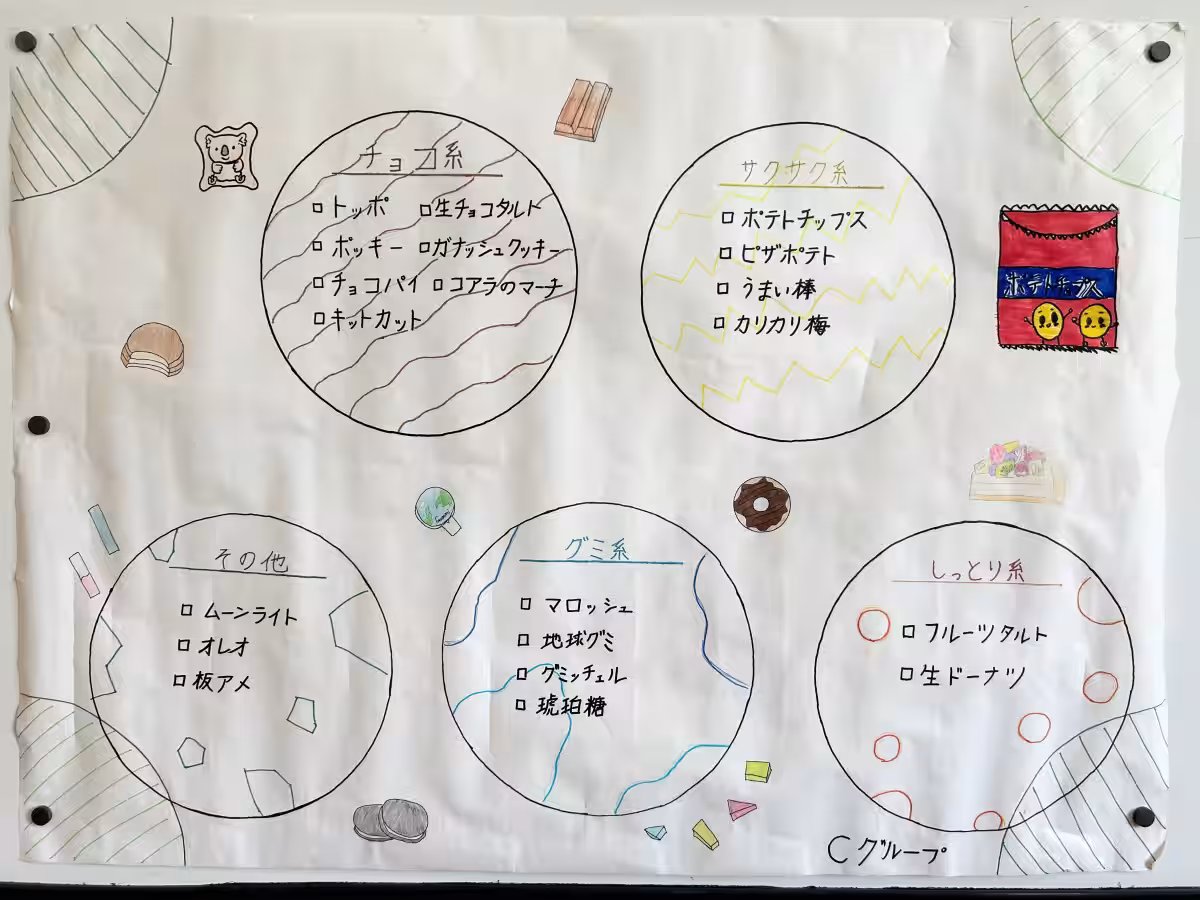 チョコ系
□トッポ □生チョコタルト
□ポッキー □ガナッシュクッキー
□チョコパイ □コアラのマーチ
□キットカット
サクサク系
□ポテトチップス
□ピザポテト
□うまい棒
□カリカリ梅
ポテトチップス
その他
□ムーンライト
□オレオ
□板アメ
グミ系
□マロッシュ
□地球グミ
□グミッチェル
□琥珀糖
しっとり系
□フルーツタルト
□生ドーナツ
Cグループ